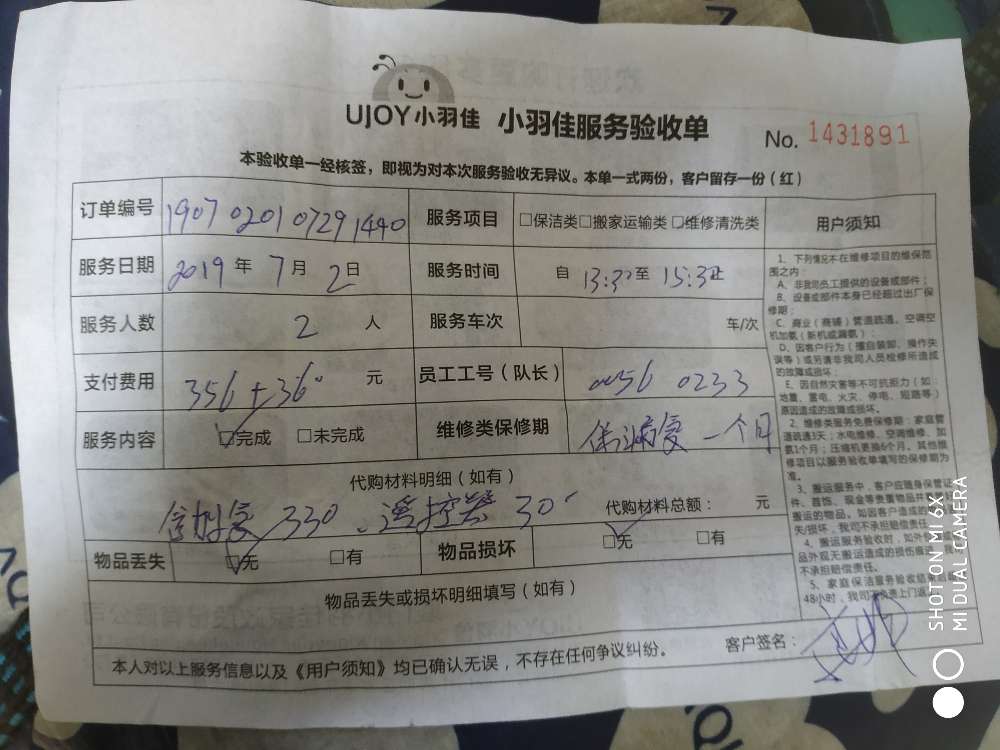 UJOY小羽佳 小羽佳服务验收单 No. 1431891
本验收单一经核签，即视为对本次服务验收无异议。本单一式两份，客户留存一份（红）
订单编号 1907 0201 0729 1440 服务项目 □保洁类□搬家运输类□维修清洗类 用户须知
服务日期 2019年7月2日 服务时间 自 13:30至 15:30止
服务人数 2 人 服务车次 车/次
支付费用 356+360 元 员工工号（队长） 0056 0233
服务内容 □完成 □未完成 维修类保修期 一个月
代购材料明细（如有）
330、遥控器 30 代购材料总额： 元
物品丢失 □无 □有 物品损坏 □无 □有
物品丢失或损坏明细填写（如有）
本人对以上服务信息以及《用户须知》均已确认无误，不存在任何争议纠纷。 客户签名：
1、下列情况不在维修项目的维保范
围之内：
A、非我司员工提供的设备或部件；
B、设备或部件本身已经超过出厂保
修期；
C、商业（商铺）管道疏通、空调空
机加氨（新机或漏氨）；
D、因客户行为（擅自装卸、操作失
误等）或另请非我司人员检修所造成
的故障或损坏；
E、因自然灾害等不可抗拒力（如：
地震、雷电、火灾、停电、短路等）
原因造成的故障或损坏。
2、维修类服务免费保修期：家庭管
道疏通3天；水电维修、空调维修、加
氨1个月；压缩机更换6个月。其他维
修项目以服务验收单填写的保修期为
准。
3、搬运服务中，客户应随身保管证
件、首饰、现金等贵重物品并
搬运的物品。如因客户造成的
失/损坏，我司不承担赔偿责任。
4、搬运服务验收时，如外包
品外观无搬运造成的损伤痕迹，我
不承担赔偿责任。
5、家庭保洁服务验收结束
48小时，我司不负责上门返
SHOT ON MI 6X
MI DUAL CAMERA